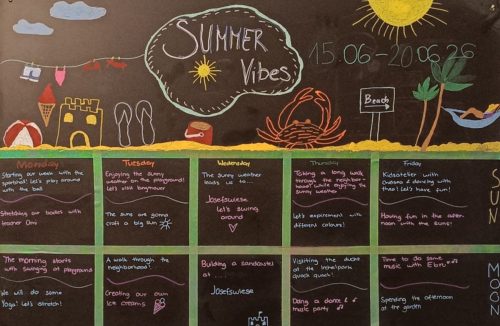 SUMMER
Vibes
15.06-20.06 26
Beach
Monday
Starting our week with the
sportskid! Let's play around
with the ball
Stretching our bodies with
teacher Omi
The morning starts
with swinging at playground
We will do some
Yoga! Let's stretch!
Tuesday
Enjoying the sunny
weather on the playground!
Let's visit
The suns are gonna
craft a big sun
A walk through the
neighborhood!
Creating our own
ice creams
Wednesday
The sunny weather
leads us to....
Josefswiese
Let's swing
around
Building a sandcastles
at ....
Josefswiese
Thursday
Taking a long walk
through the neighbor-
hood while enjoying the
sunny weather
Let's expirement with
different colours!
Visiting the ducks
at the
quack quack!
Doing a dance &
music party
Friday
Kidsatelier with
dancing with
theo! Let's have fun!
Having fun in the after-
noon with the suns!
Time to do some
music with Ebru
Spending the afternoon
at the garden
SUN
MOON